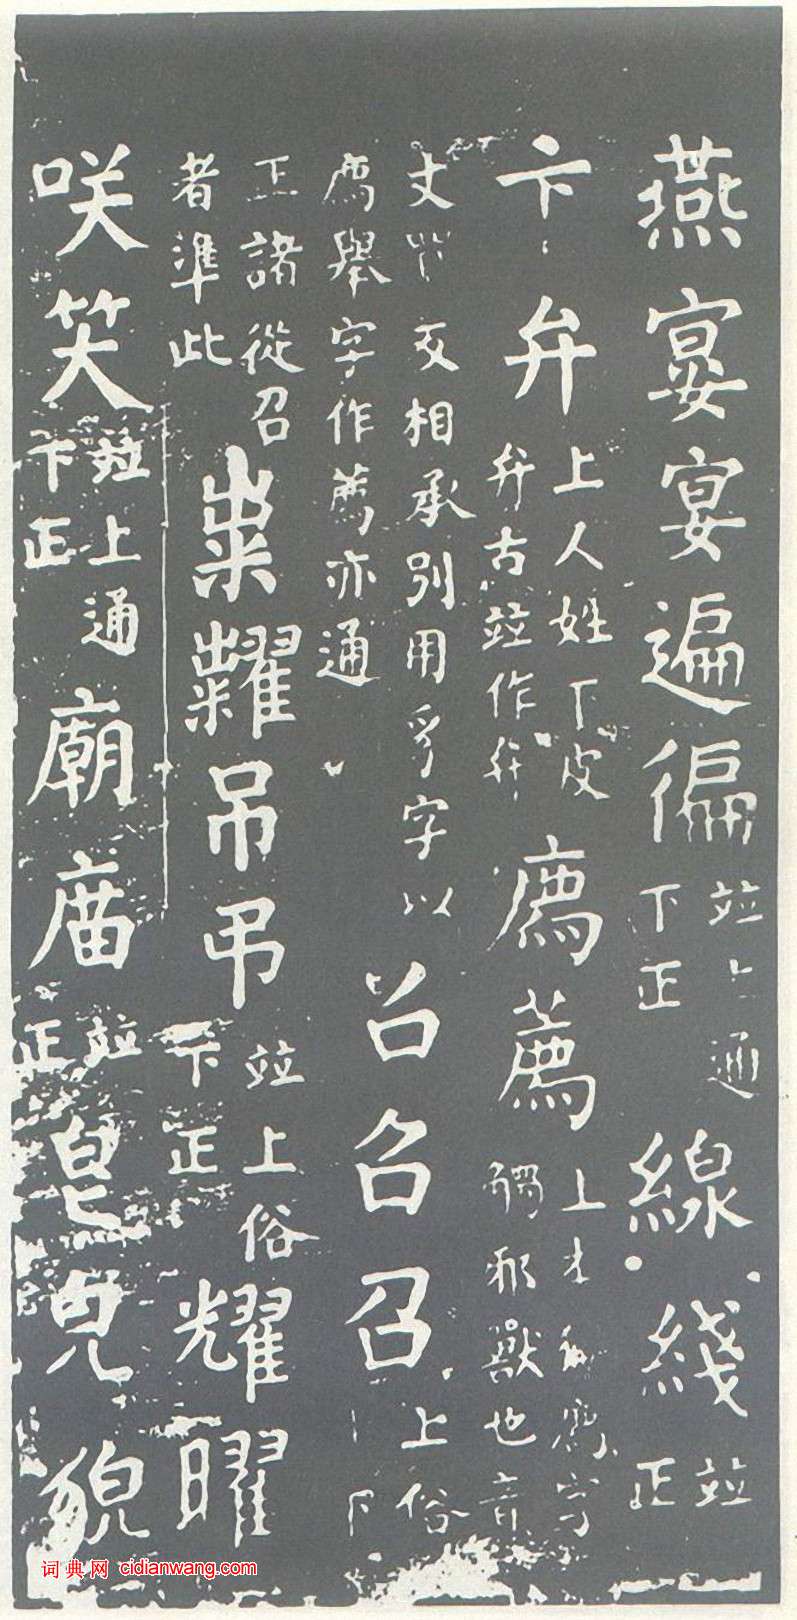 燕宴宴遍徧並上通下正線綫並正
卞弁上人姓下皮弁古並作弁廌薦上字觸邪獸也音
丈反相承別用豸字以廌舉字作薦亦通召召召上俗下
正諸從召者準此粜糶吊弔並上俗下正耀曜
咲笑並上通下正廟庿並正皃皃貌
词典网 cidianwang.com